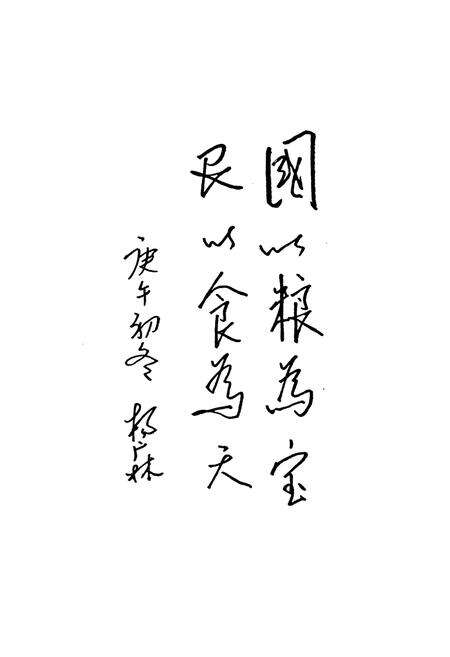 國以粮為宝
民以食為天
庚午初冬 楊广林